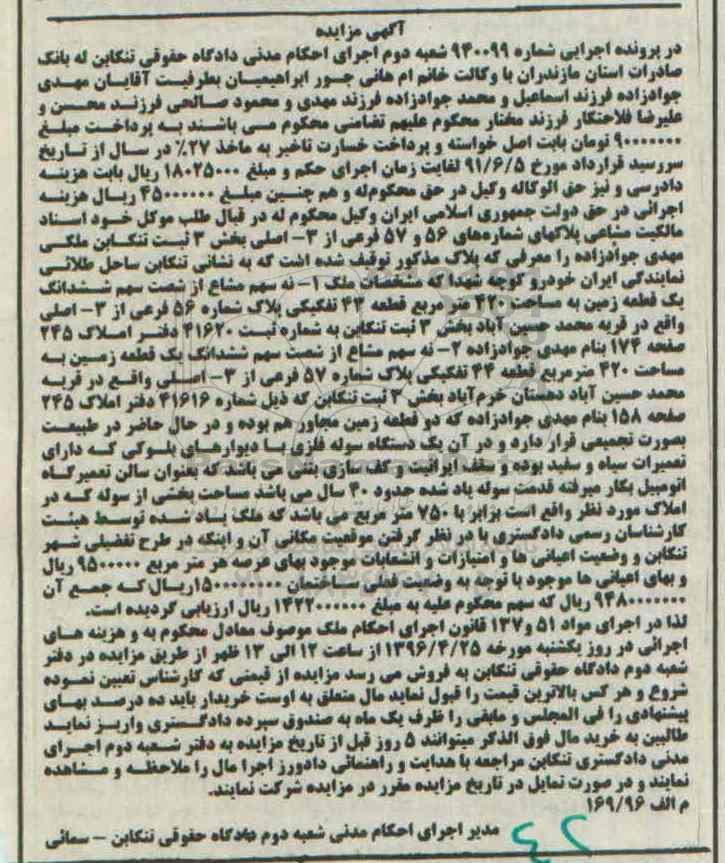 آگهی مزایده
در پرونده اجرایی شماره ۹۴۰۰۹۹ شعبه دوم اجرای احکام مدنی دادگاه حقوقی تنکابن له بانک
صادرات استان مازندران با وکالت خانم ام هانی جور ابراهیمیان بطرفیت آقایان مهدی
جوادزاده فرزند اسماعیل و محمد جوادزاده فرزند مهدی و محمود صالحی فرزند محسن و
علیرضا فلاحتکار فرزند مختار محکوم علیهم تضامنی محکوم می باشند به پرداخت مبلغ
۹۰۰۰۰۰۰۰ تومان بابت اصل خواسته و پرداخت خسارت تاخیر به ماخذ ۲۷٪ در سال از تاریخ
سررسید قرارداد مورخ ۹۱/۶/۵ لغایت زمان اجرای حکم و مبلغ ۱۸۰۲۵۰۰۰ ریال بابت هزینه
دادرسی و نیز حق الوکاله وکیل در حق محکوم‌له و هم چنین مبلغ ۴۵۰۰۰۰۰۰ ریال هزینه
اجرائی در حق دولت جمهوری اسلامی ایران وکیل محکوم له در قبال طلب موکل خود اسناد
مالکیت مشاعی پلاکهای شماره‌های ۵۶ و ۵۷ فرعی از ۳- اصلی بخش ۳ ثبت تنکابن ملکی
مهدی جوادزاده را معرفی که پلاک مذکور توقیف شده است که به نشانی تنکابن ساحل طلائی
نمایندگی ایران خودرو کوچه شهدا که مشخصات ملک ۱- نه سهم مشاع از شصت سهم ششدانگ
یک قطعه زمین به مساحت ۴۲۰ متر مربع قطعه ۴۳ تفکیکی پلاک شماره ۵۶ فرعی از ۳- اصلی
واقع در قریه محمد حسین آباد بخش ۳ ثبت تنکابن به شماره ثبت ۴۱۶۲۰ دفتر املاک ۲۴۵
صفحه ۱۷۴ بنام مهدی جوادزاده ۲- نه سهم مشاع از شصت سهم ششدانگ یک قطعه زمین به
مساحت ۴۲۰ مترمربع قطعه ۴۴ تفکیکی پلاک شماره ۵۷ فرعی از ۳- اصلی واقع در قریه
محمد حسین آباد دهستان خرم‌آباد بخش ۳ ثبت تنکابن که ذیل شماره ۴۱۶۱۶ دفتر املاک ۲۴۵
صفحه ۱۵۸ بنام مهدی جوادزاده که دو قطعه زمین مجاور هم بوده و در حال حاضر در طبیعت
بصورت تجمیعی قرار دارد و در آن یک دستگاه سوله فلزی با دیوارهای بلوکی که دارای
تعمیرات سیاه و سفید بوده و سقف ایرانیت و کف سازی بتنی می باشد که بعنوان سالن تعمیرگاه
اتومبیل بکار میرفته قدمت سوله یاد شده حدود ۲۰ سال می باشد مساحت بخشی از سوله که در
املاک مورد نظر واقع است برابر با ۷۵۰ متر مربع می باشد که ملک یاد شده توسط هیئت
کارشناسان رسمی دادگستری با در نظر گرفتن موقعیت مکانی آن و اینکه در طرح تفضیلی شهر
تنکابن و وضعیت اعیانی ها و امتیازات و انشعابات موجود بهای عرصه هر متر مربع ۹۵۰۰۰۰۰ ریال
و بهای اعیانی ها موجود با توجه به وضعیت فعلی ساختمان ۱۵۰۰۰۰۰۰۰۰ ریال که جمع آن
۹۴۸۰۰۰۰۰۰۰ ریال که سهم محکوم علیه به مبلغ ۱۴۲۲۰۰۰۰۰۰ ریال ارزیابی گردیده است.
لذا در اجرای مواد ۵۱ و ۱۳۷ قانون اجرای احکام ملک موصوف معادل محکوم به و هزینه های
اجرائی در روز یکشنبه مورخه ۱۳۹۶/۴/۲۵ از ساعت ۱۲ الی ۱۳ ظهر از طریق مزایده در دفتر
شعبه دوم دادگاه حقوقی تنکابن به فروش می رسد مزایده از قیمتی که کارشناس تعیین نموده
شروع و هر کس بالاترین قیمت را قبول نماید مال متعلق به اوست خریدار باید ده درصد بهای
پیشنهادی را فی المجلس و مابقی را ظرف یک ماه به صندوق سپرده دادگستری واریز نماید
طالبین به خرید مال فوق الذکر میتوانند ۵ روز قبل از تاریخ مزایده به دفتر شعبه دوم اجرای
مدنی دادگستری تنکابن مراجعه با هدایت و راهنمائی دادورز اجرا مال را ملاحظه و مشاهده
نمایند و در صورت تمایل در تاریخ مزایده مقرر در مزایده شرکت نمایند.
م الف ۱۶۹/۹۶
مدیر اجرای احکام مدنی شعبه دوم دادگاه حقوقی تنکابن – سمائی